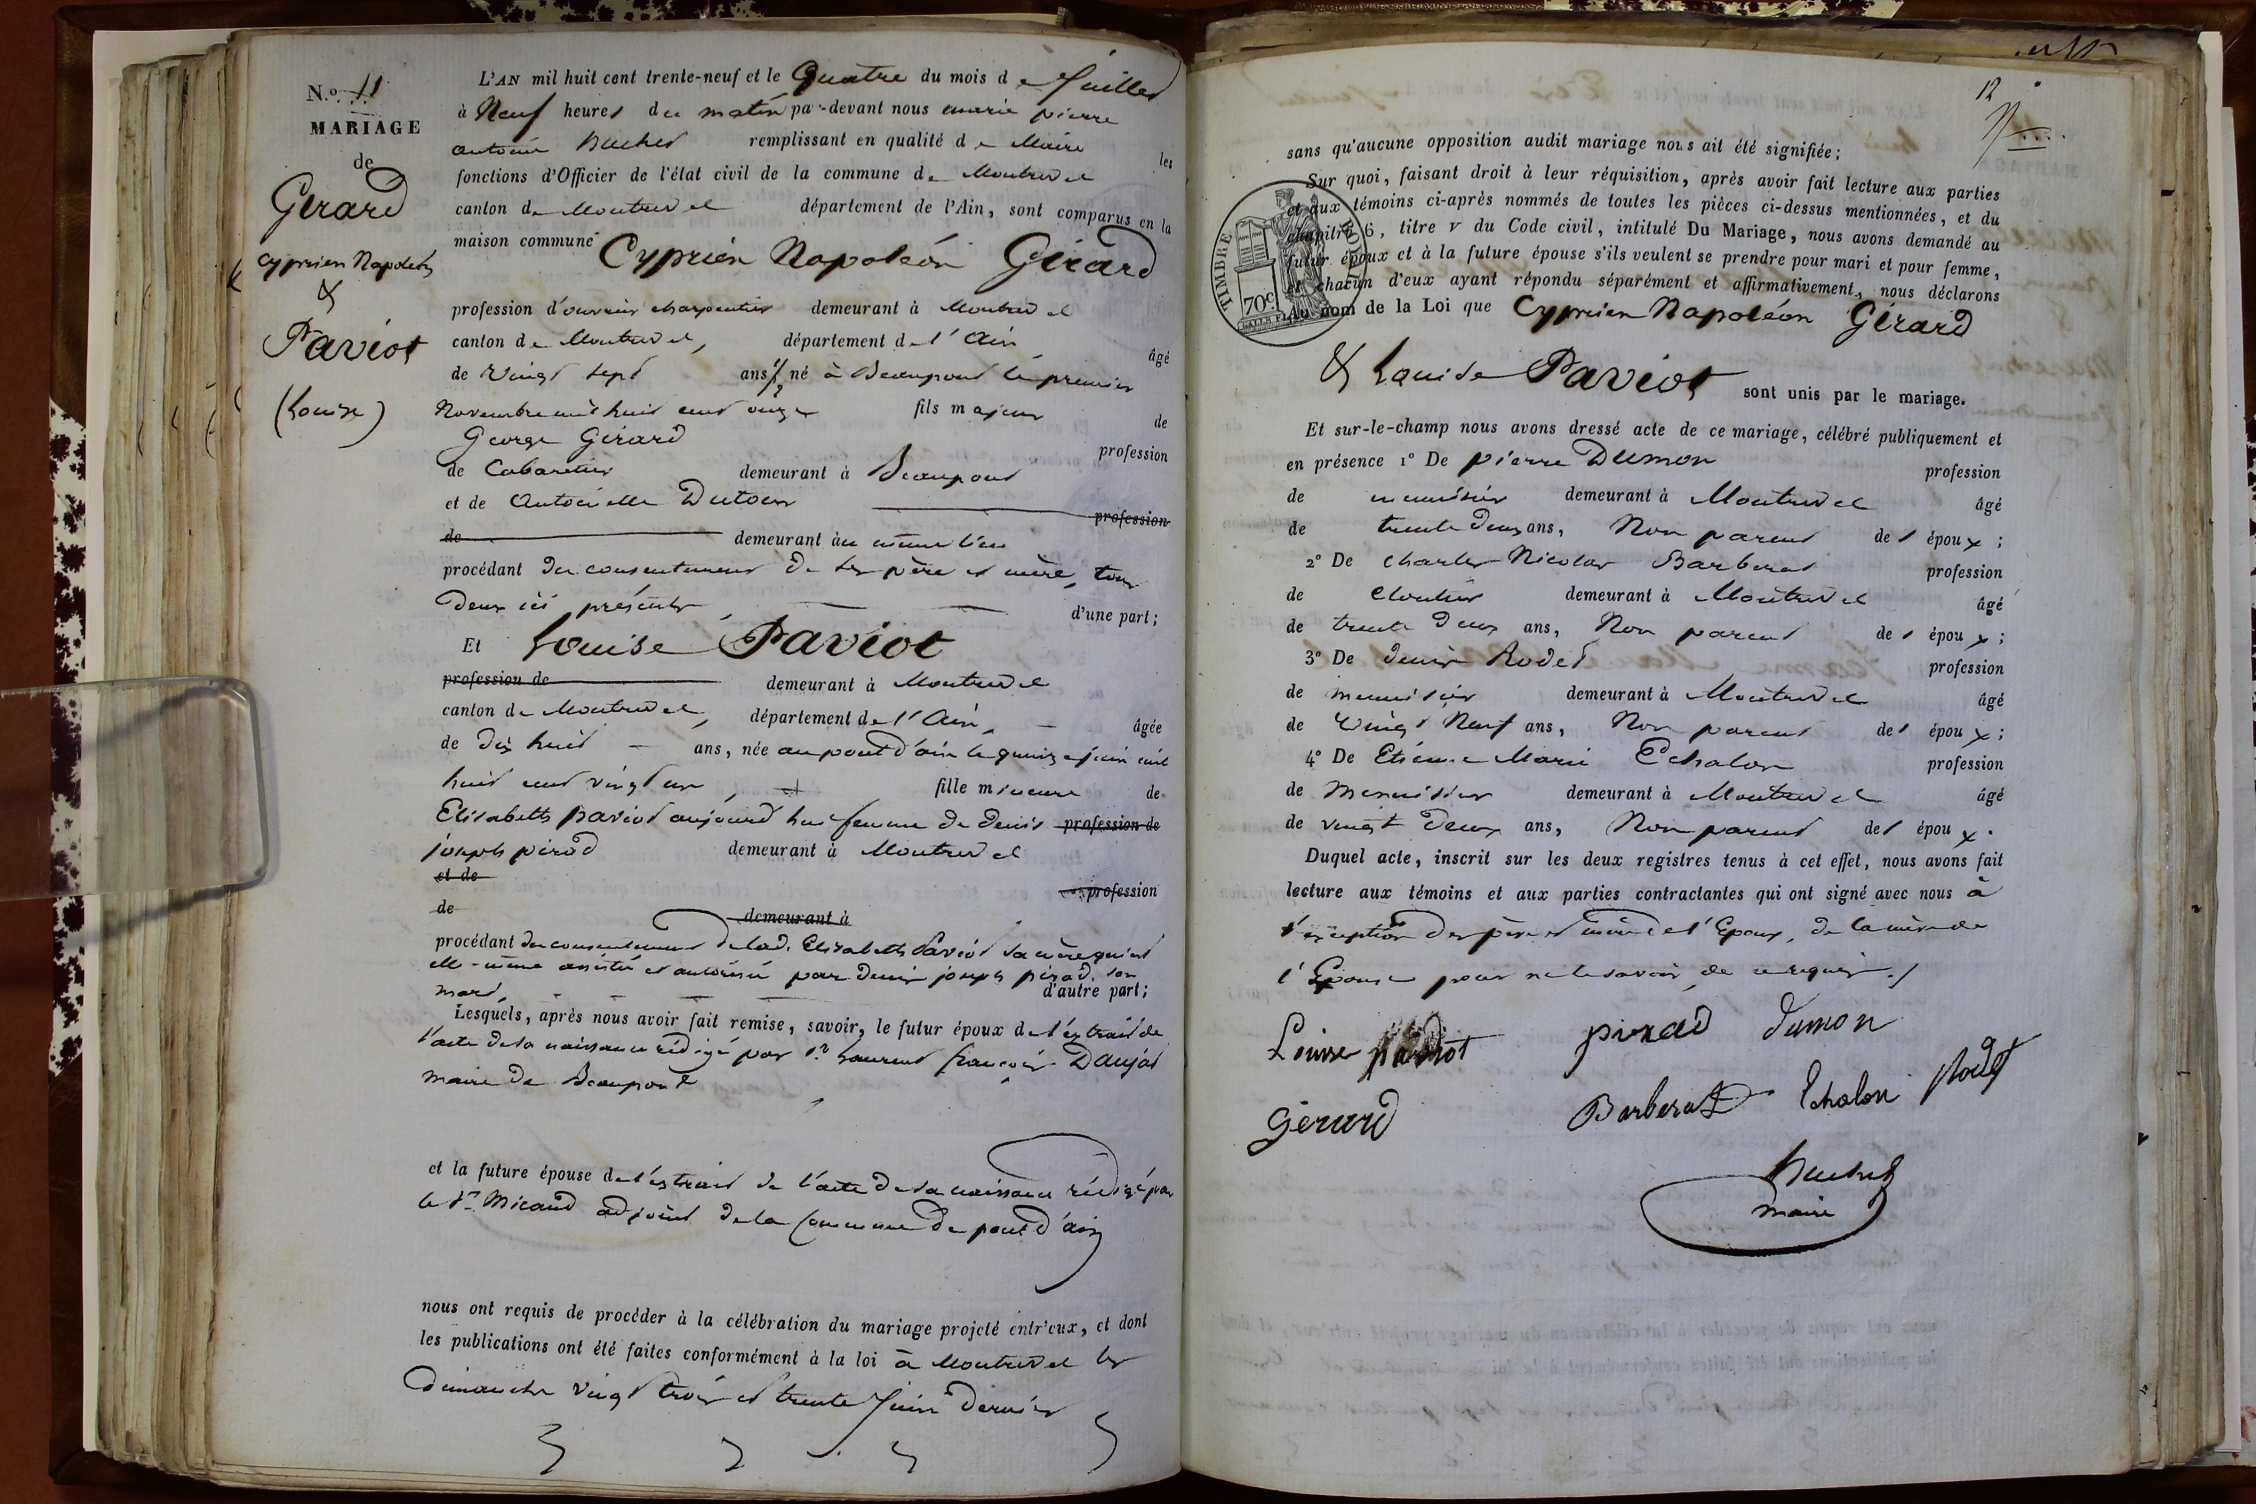 N.o 11
MARIAGE
de
Gérard
Cyprien Napoléon
&
Paviot
(Louise)
L'AN mil huit cent trente-neuf et le Quatre du mois de Juillet
à Neuf heures du matin par-devant nous marie pierre
antoine remplissant en qualité de Maire les
fonctions d'Officier de l'état civil de la commune de Montrevel
canton de Montrevel département de l'Ain, sont comparus en la
maison commune Cyprien Napoléon Gérard
profession d'ouvrier charpentier demeurant à Montrevel
canton de Montrevel, département de l'Ain âgé
de vingt sept ans 1/2 né à Beaupont le premier
Novembre mil huit cent onze fils majeur de
George Gérard profession
de Cabaretier demeurant à Beaupont
et de Antoinette Dutour profession
de demeurant au même lieu
procédant du consentement de ses père et mère, tous
deux ici présents, d'une part;
Et Louise Paviot
profession de demeurant à Montrevel
canton de Montrevel, département de l'Ain, âgée
de dix huit ans, née au pont d'ain le quinze juin mil
huit cent vingt un, fille mineure de
Elisabeth paviot aujourd'hui femme de denis profession de
joseph pirod demeurant à Montrevel
et de profession
de demeurant à
procédant du consentement de lad. Elisabeth Paviot sa mère qui est
elle-même assistée et autorisée par denis joseph pirod, son
mari, d'autre part;
Lesquels, après nous avoir fait remise, savoir, le futur époux de l'extrait de
l'acte de sa naissance rédigé par sr. Laurent françois Daujat
maire de Beaupont
et la future épouse de l'extrait de l'acte de sa naissance rédigé par
le sr. Micaud adjoint de la Commune de pont d'ain
nous ont requis de procéder à la célébration du mariage projeté entr'eux, et dont
les publications ont été faites conformément à la loi à Montrevel les
dimanches vingt trois et trente Juin dernier
12
sans qu'aucune opposition audit mariage nous ait été signifiée;
Sur quoi, faisant droit à leur réquisition, après avoir fait lecture aux parties
et aux témoins ci-après nommés de toutes les pièces ci-dessus mentionnées, et du
chapitre 6, titre v du Code civil, intitulé Du Mariage, nous avons demandé au
futur époux et à la future épouse s'ils veulent se prendre pour mari et pour femme,
et chacun d'eux ayant répondu séparément et affirmativement, nous déclarons
Au nom de la Loi que Cyprien Napoléon Gérard
TIMBRE ROYAL
70c
& Louise Paviot sont unis par le mariage.
Et sur-le-champ nous avons dressé acte de ce mariage, célébré publiquement et
en présence 1° De pierre Dumon profession
de menuisier demeurant à Montrevel âgé
de trente deux ans, Non parent de l'époux;
2° De charles Nicolas Barberat profession
de Cloutier demeurant à Montrevel âgé
de trente deux ans, Non parent de l'époux;
3° De denis Rodet profession
de menuisier demeurant à Montrevel âgé
de vingt Neuf ans, Non parent de l'époux;
4° De Etienne Marie Echalon profession
de Menuisier demeurant à Montrevel âgé
de vingt deux ans, Non parent de l'époux.
Duquel acte, inscrit sur les deux registres tenus à cet effet, nous avons fait
lecture aux témoins et aux parties contractantes qui ont signé avec nous à
l'exception des père et mère de l'Epoux, de la mère de
l'Epouse pour ne le savoir de ce requis./
Louise paviot pirod dumon
Gérard Barberat Echalon Rodet
maire